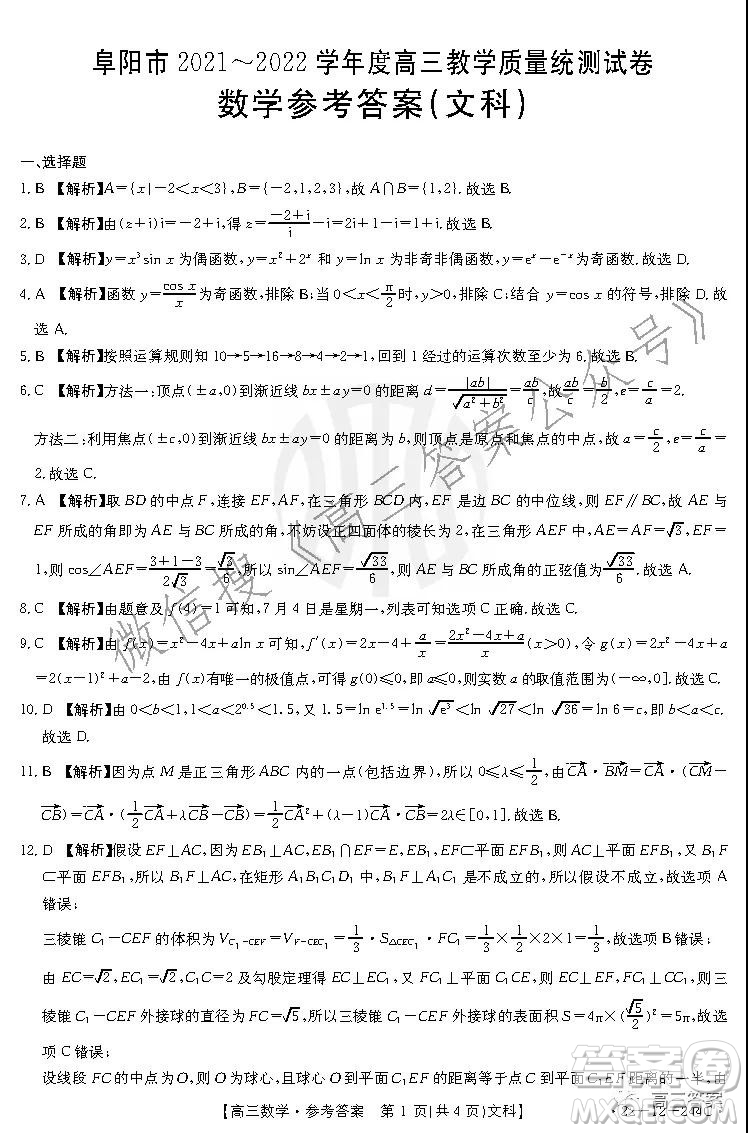 阜阳市 2021～2022 学年度高三教学质量统测试卷
数学参考答案(文科)
一、选择题
1. B 【解析】A={x|-2<x<3},B={-2,1,2,3},故 A∩B={1,2}. 故选 B.
2. B 【解析】由(z+i)i=-2+i,得 z=\frac{-2+i}{i}-i=2i+1-i=1+i. 故选 B.
3. D 【解析】y=x³sin x 为偶函数,y=x²+2ˣ 和 y=ln x 为非奇非偶函数,y=eˣ-e⁻ˣ为奇函数. 故选 D.
4. A 【解析】函数 y=\frac{cos x}{x}为奇函数,排除 B;当 0<x<\frac{π}{2}时,y>0,排除 C,根据 y=cos x 的符号,排除 D. 故
选 A.
5. B 【解析】按照运算规则知 10→5→16→8→4→2→1,回到 1 经过的运算次数至少为 6. 故选 B.
6. C 【解析】方法一:顶点(±a,0)到渐近线 bx±ay=0 的距离 d=\frac{|ab|}{\sqrt{a²+b²}}=\frac{ab}{c},故\frac{ab}{c}=\frac{b}{2},e=\frac{c}{a}=2.
方法二:利用焦点(±c,0)到渐近线 bx±ay=0 的距离为 b,则顶点是原点和焦点的中点,故 a=\frac{c}{2},e=\frac{c}{a}=
2. 故选 C.
7. A 【解析】取 BD 的中点 F,连接 EF,AF,在三角形 BCD 内,EF 是边 BD 的中位线,则 EF∥BD,故 AE 与
EF 所成的角即为 AE 与 BD 所成的角,不妨设正四面体的棱长为 2,在三角形 AEF 中,AE=AF=√3,EF=
1,则 cos∠AEF=\frac{3+1-3}{2\sqrt{3}}=\frac{\sqrt{3}}{6},所以 sin∠AEF=\frac{\sqrt{33}}{6},所以 AE 与 BD 所成角的正弦值为\frac{\sqrt{33}}{6}. 故选 A.
8. C 【解析】由题意及 f(4)=1 可知,7 月 4 日是星期一,列表可知选项 C 正确. 故选 C.
9. C 【解析】由 f(x)=x²-4x+aln x 可知,f′(x)=2x-4+\frac{a}{x}=\frac{2x²-4x+a}{x}(x>0),令 g(x)=2x²-4x+a
=2(x-1)²+a-2,由函数 f(x)有唯一的极值点,可得 g(0)≤0,即 a≤0,则实数 a 的取值范围为(-∞,0]. 故选 C.
10. D 【解析】由 0<b<1,1<a<2⁰·⁵<1.5,又 1.5=ln e¹·⁵=ln \sqrt{e³}<ln \sqrt{27}<ln \sqrt{36}=ln 6=c,即 b<a<c.
故选 D.
11. B 【解析】因为点 M 是正三角形 ABC 内的一点(包括边界),所以 0≤λ≤\frac{1}{2},由\overrightarrow{CA}·\overrightarrow{BM}=\overrightarrow{CA}·(\overrightarrow{CM}-
\overrightarrow{CB})=\overrightarrow{CA}·(\frac{1}{2}\overrightarrow{CA}+λ\overrightarrow{CB}-\overrightarrow{CB})=\frac{1}{2}\overrightarrow{CA}²+(λ-1)\overrightarrow{CA}·\overrightarrow{CB}=2λ∈[0,1]. 故选 B.
12. D 【解析】假设 EF⊥AC,因为 EB₁⊥AC,EB₁∩EF=E,EB₁,EF⊂平面 EFB₁,所以 AC⊥平面 EFB₁,又 B₁F
⊂平面 EFB₁,所以 B₁F⊥AC,在矩形 A₁B₁C₁D₁ 中,B₁F⊥A₁C₁是不成立的,所以假设不成立,故选项 A
错误;
三棱锥 C₁-CEF 的体积为 V_{C₁-CEF}=V_{F-CEC₁}=\frac{1}{3}·S_{△CEC₁}·FC₁=\frac{1}{3}×\frac{1}{2}×2×1=\frac{1}{3},故选项 B 错误;
由 EC=√2,EC₁=√2,C₁C=2 及勾股定理得 EC⊥EC₁,又 FC₁⊥平面 C₁CE,则 EC⊥EF,FC₁⊥CC₁,故三
棱锥 C₁-CEF 外接球的直径为 FC=√5,所以三棱锥 C₁-CEF 外接球的表面积 S=4π×(\frac{\sqrt{5}}{2})²=5π,故选
项 C 错误;
设线段 FC 的中点为 O,则 O 为球心,且球心 O 到平面 C₁EF 的距离等于点 C 到平面 C₁EF 距离的一半,由
【高三数学·参考答案 第 1 页(共 4 页)文科】
·22-12-244C·
微信搜《高三答案公众号》
答案圈
高三答案